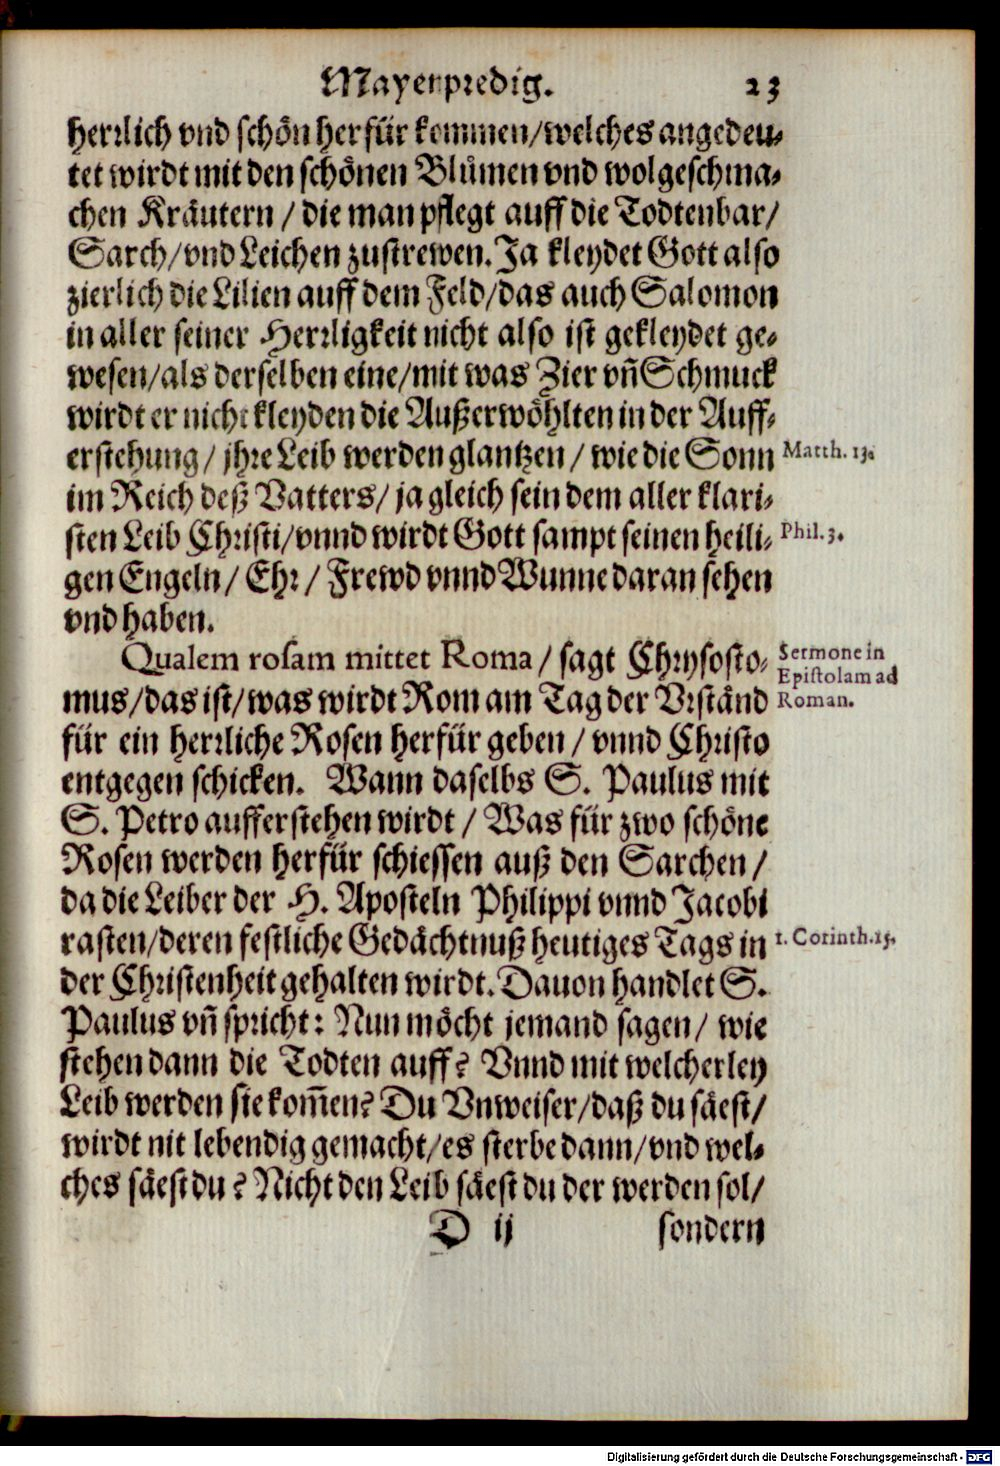 Mayenpredig. 23
herrlich vnd schön herfür kommen/welches angedeu-
tet wirdt mit den schönen Blůmen vnd wolgeschma-
chen Kräutern / die man pflegt auff die Todtenbar/
Sarch/vnd Leichen zustrewen. Ja kleydet Gott also
zierlich die Lilien auff dem Feld/das auch Salomon
in aller seiner Herrligkeit nicht also ist gekleydet ge-
wesen/als derselben eine/mit was Zier vñ Schmuck
wirdt er nicht kleyden die Außerwöhlten in der Auff-
erstehung / jhre Leib werden glantzen / wie die Sonn
Matth. 13.
im Reich deß Vatters/ ja gleich sein dem aller klari-
sten Leib Christi/vnnd wirdt Gott sampt seinen heili-
Phil. 3.
gen Engeln / Ehr / Frewd vnnd Wunne daran sehen
vnd haben.
Qualem rosam mittet Roma / sagt Chrysosto-
Sermone in
Epistolam ad
Roman.
mus/das ist/was wirdt Rom am Tag der Vrständ
für ein herrliche Rosen herfür geben / vnnd Christo
entgegen schicken. Wann daselbs S. Paulus mit
S. Petro aufferstehen wirdt / Was für zwo schöne
Rosen werden herfür schiessen auß den Sarchen /
da die Leiber der H. Aposteln Philippi vnnd Jacobi
rasten/deren festliche Gedächtnuß heutiges Tags in
1. Corinth. 15.
der Christenheit gehalten wirdt. Dauon handlet S.
Paulus vñ spricht: Nun möcht jemand sagen/ wie
stehen dann die Todten auff? Vnnd mit welcherley
Leib werden sie kom̃en? Du Vnweiser/daß du säest/
wirdt nit lebendig gemacht/es sterbe dann/vnd wel-
ches säest du? Nicht den Leib säest du der werden sol/
D ij sondern
Digitalisierung gefördert durch die Deutsche Forschungsgemeinschaft - DFG